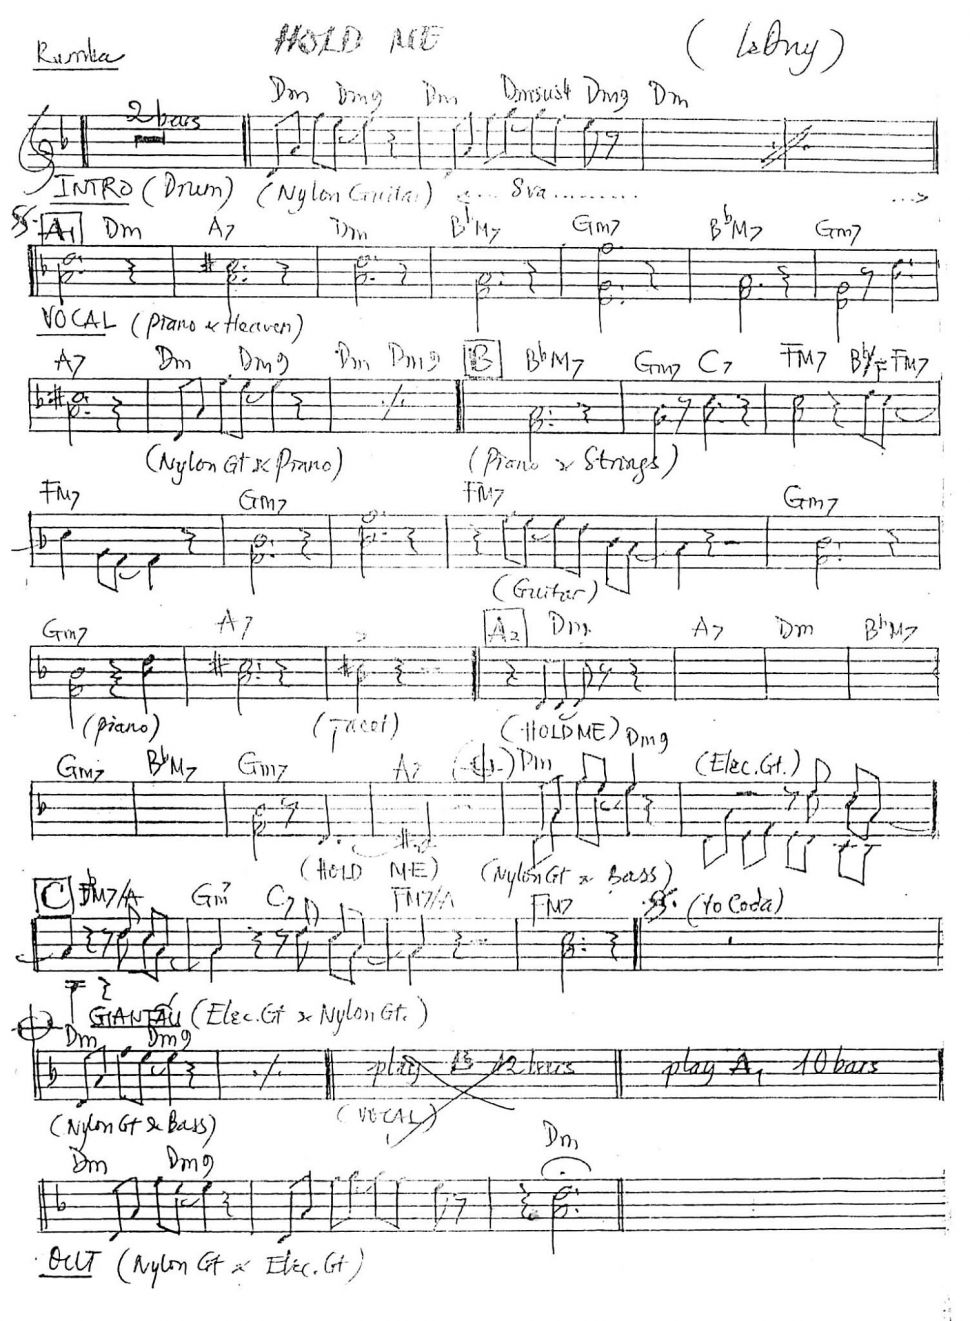 HOLD ME
Rumba
2 bars
Dm Dm9 Dm Dmsus4 Dm9 Dm
INTRO (Drum) (Nylon Guitar) <... 8va ......... ...>
A1 Dm A7 Dm BbM7 Gm7 BbM7 Gm7
VOCAL (Piano x Heaven)
A7 Dm Dm9 Dm Dm9 B BbM7 Gm7 C7 FM7 FM7
(Nylon Gt x Piano) (Piano x Strings)
FM7 Gm7 FM7 Gm7
(Guitar)
Gm7 A7 A2 Dm A7 Dm BbM7
(piano) (Tacet) (HOLD ME)
Gm7 BbM7 Gm7 A7 Dm Dm9 (Elec.Gt.)
(HOLD ME) (Nylon Gt x Bass)
C Gm7 C7 FM7/A FM7 (To Coda)
GIANTAU (Elec.Gt x Nylon Gt.)
Dm Dm9
play 12 bars play A1 10 bars
(Nylon Gt x Bass) (VOCAL)
Dm Dm9 Dm
OUT (Nylon Gt x Elec.Gt)